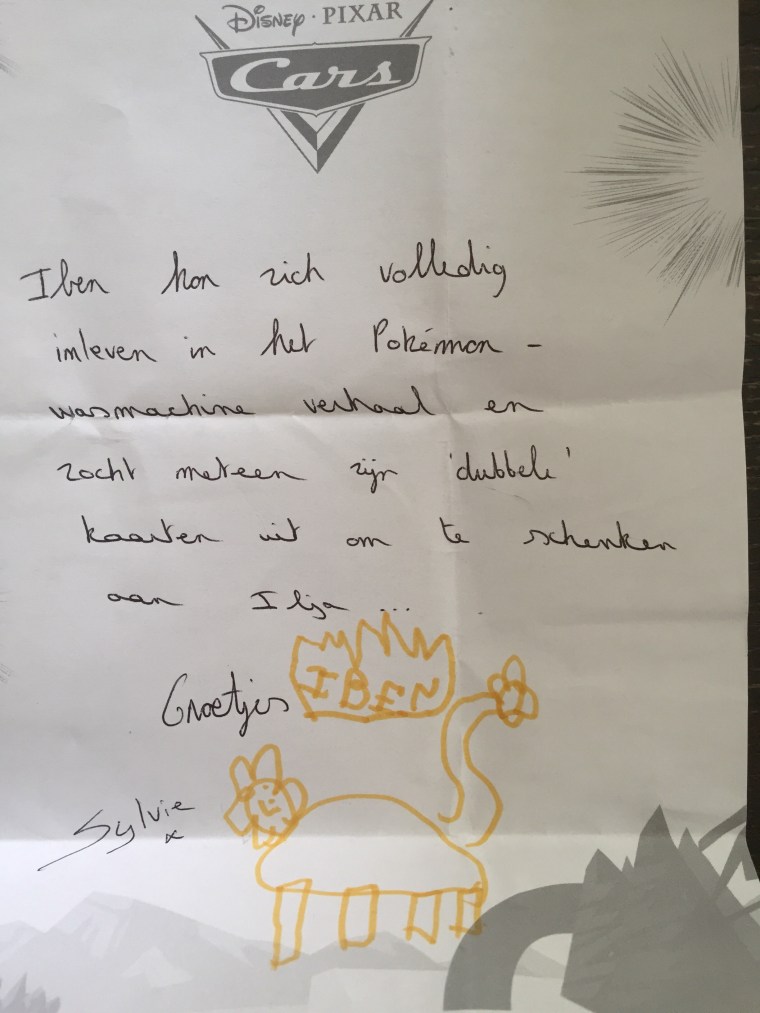 DISNEY · PIXAR
Cars
Iben kon zich volledig
inleven in het Pokémon -
wasmachine verhaal en
zocht meteen zijn 'dubbele'
kaarten uit om te schenken
aan Ilja ...
IBEN
Groetjes
Sylvie
x